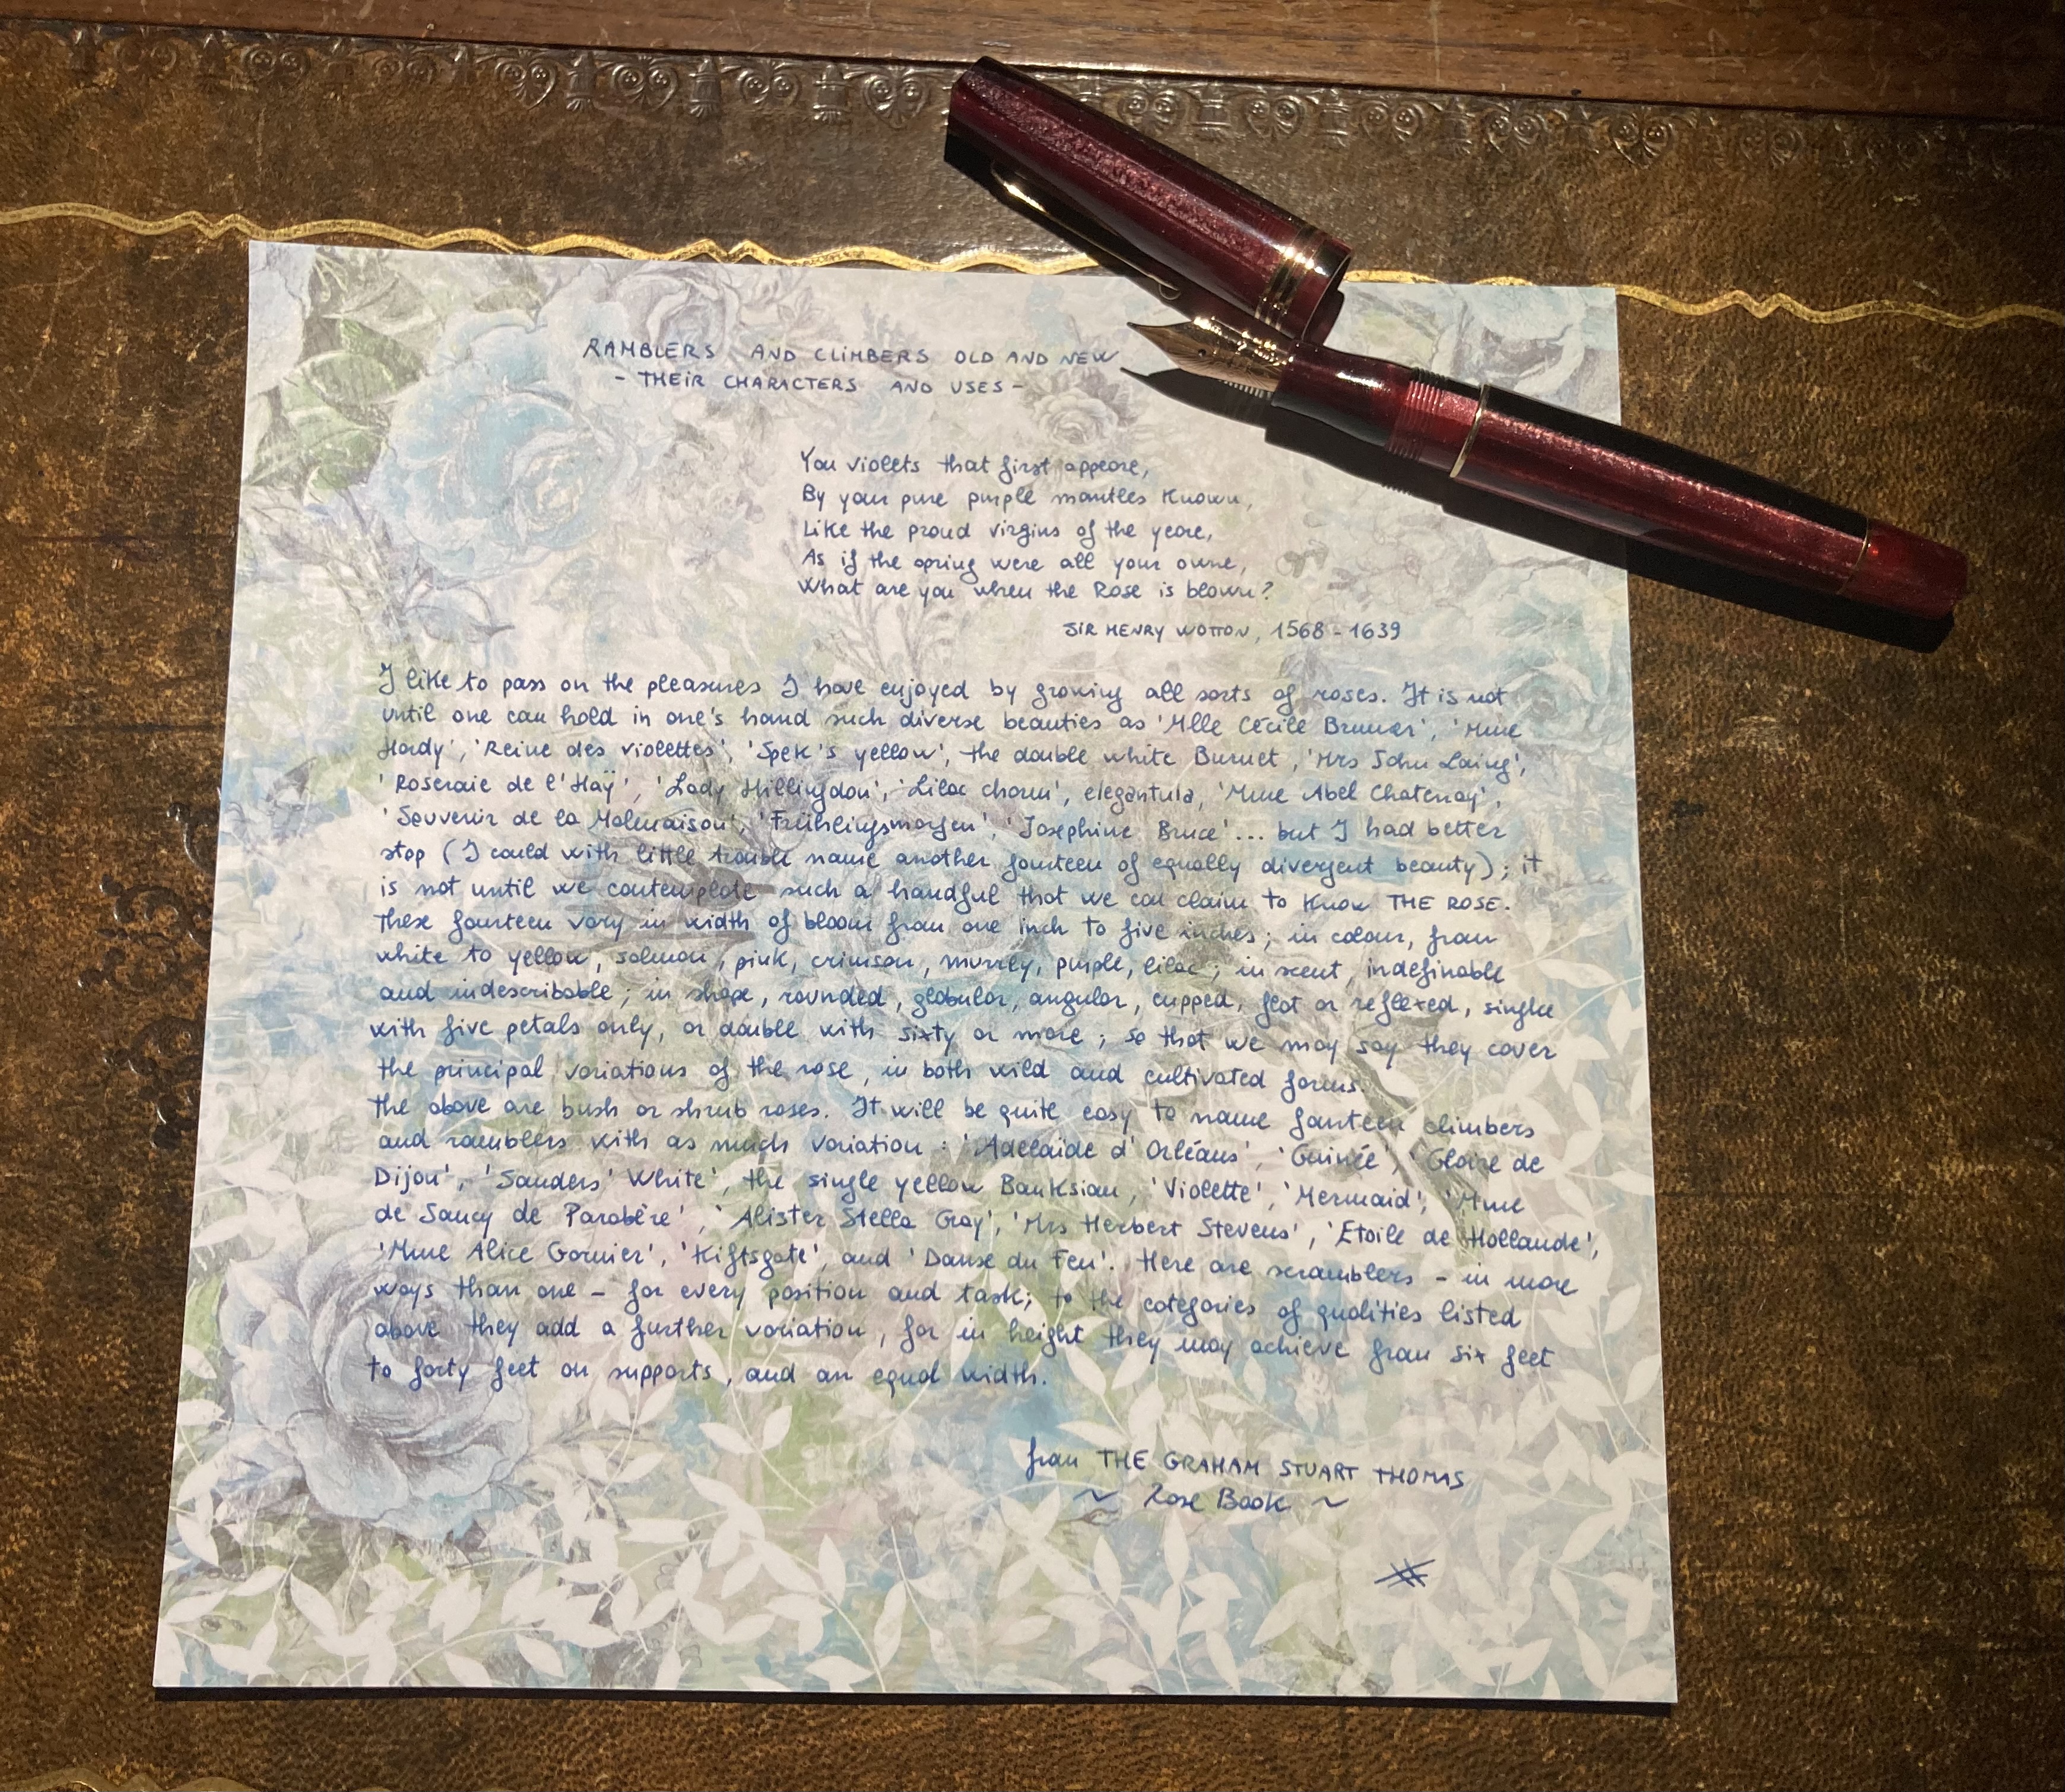 RAMBLERS AND CLIMBERS OLD AND NEW
- THEIR CHARACTERS AND USES -
You violets that first appeare,
By your pure purple mantles known,
Like the proud virgins of the yeare,
As if the spring were all your owne,
What are you when the Rose is blown?
SIR HENRY WOTTON, 1568 - 1639
I like to pass on the pleasures I have enjoyed by growing all sorts of roses. It is not
until one can hold in one's hand such diverse beauties as 'Mlle Cécile Brunner', 'Mme
Hardy', 'Reine des violettes', 'Spek's yellow', the double white Burnet, 'Mrs John Laing',
'Roseraie de l'Haÿ', 'Lady Hillingdon', 'Lilac charm', elegantula, 'Mme Abel Chatenay',
'Souvenir de la Malmaison', 'Frühlingsmorgen', 'Josephine Bruce'... but I had better
stop (I could with little trouble name another fourteen of equally divergent beauty); it
is not until we contemplate such a handful that we can claim to know THE ROSE.
These fourteen vary in width of bloom from one inch to five inches; in colour, from
white to yellow, salmon, pink, crimson, murrey, purple, lilac; in scent, indefinable
and indescribable; in shape, rounded, globular, angular, cupped, flat or reflexed, single
with five petals only, or double with sixty or more; so that we may say they cover
the principal variations of the rose, in both wild and cultivated forms.
The above are bush or shrub roses. It will be quite easy to name fourteen climbers
and ramblers with as much variation: 'Adelaïde d'Orléans', 'Guinée', 'Gloire de
Dijon', 'Sanders' White', the single yellow Banksian, 'Violette', 'Mermaid', 'Mme
de Sancy de Parabère', 'Alister Stella Gray', 'Mrs Herbert Stevens', 'Etoile de Hollande',
'Mme Alice Garnier', 'Kiftsgate', and 'Danse du Feu'. Here are scramblers - in more
ways than one - for every position and task; to the categories of qualities listed
above they add a further variation, for in height they may achieve from six feet
to forty feet on supports, and an equal width.
from THE GRAHAM STUART THOMAS
~ Rose Book ~